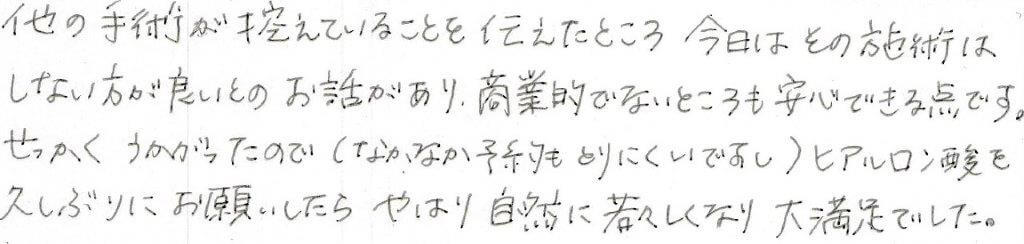 他の手術が控えていることを伝えたところ 今日はその施術は
しない方が良いとのお話があり、商業的でないところも安心できる点です。
せっかくうかがったので(なかなか予約もとりにくいですし)ヒアルロン酸を
久しぶりにお願いしたら やはり自然に若々しくなり大満足でした。